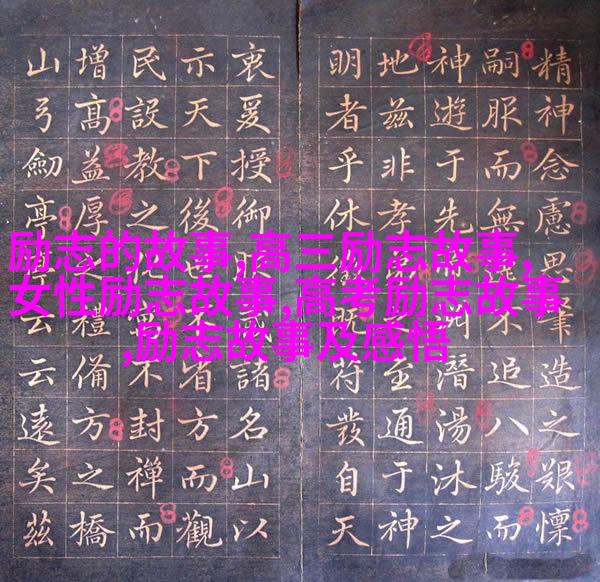 精神念慮思肇造之艱懍
嗣服而無不追八駿而
神遊于先潛湯沐之
地茲非孝至通于神
明者乎休既符發自天
衷爰授御諸名山以
示天下後世省方而觀
民設教之不封禪而
增高益厚禮備方之橋
山弓劍亭云云遠矣茲
励志的故事,高三励志故事,
女性励志故事,高考励志故事
,励志故事及感悟